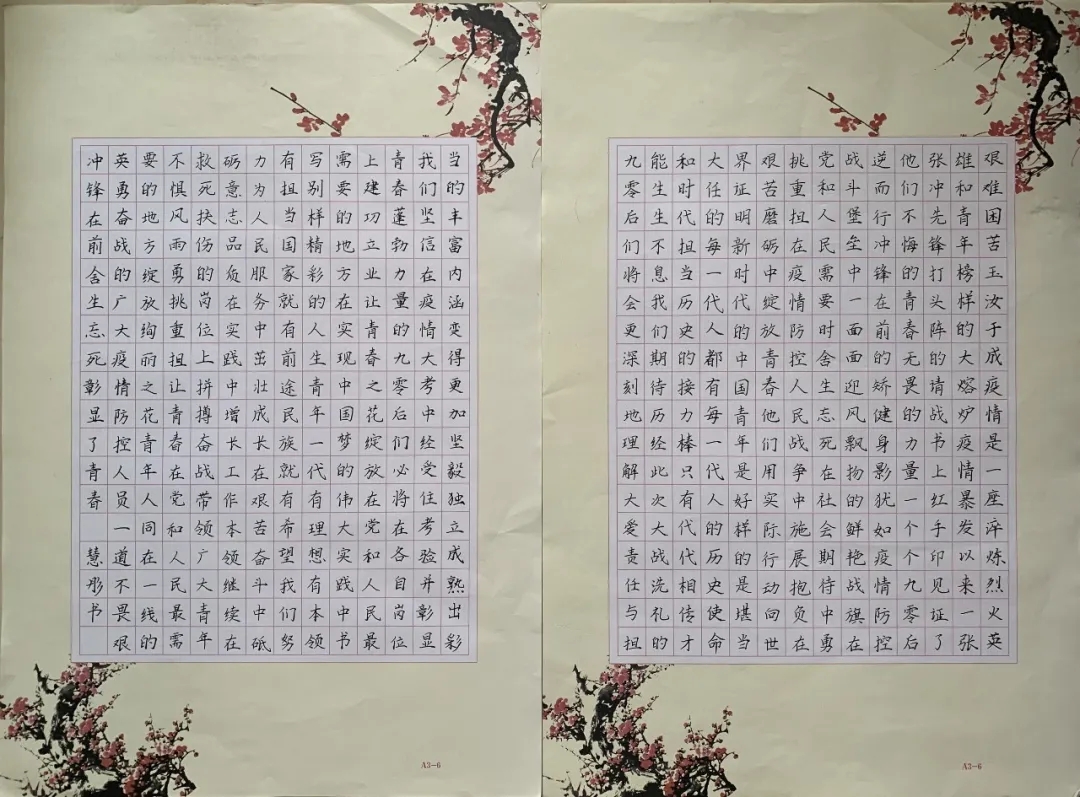 艰难困苦玉汝于成疫情是一座淬炼烈火英
雄和青年榜样的大熔炉疫情暴发以来一张
张冲先锋打头阵的请战书上红手印见证了
他们不悔的青春无畏的力量一个个九零后
逆而行冲锋在前的矫健身影犹如疫情防控
战斗堡垒中一面面迎风飘扬的鲜艳战旗在
党和人民需要时舍生忘死在社会期待中勇
挑重担在疫情防控人民战争中施展抱负在
艰苦磨砺中绽放青春他们用实际行动向世
界证明新时代的中国青年是好样的是堪当
大任的每一代人都有每一代人的历史使命
和时代担当历史的接力棒只有代代相传才
能生生不息我们期待历经此次大战洗礼的
九零后们将会更深刻地理解大爱责任与担
当的丰富内涵变得更加坚毅独立成熟出彩
我们坚信在疫情大考中经受住考验并彰显
青春蓬勃力量的九零后们必将在各自岗位
上建功立业让青春之花绽放在党和人民最
需要的地方在实现中国梦的伟大实践中书
写别样精彩的人生青年一代有理想有本领
有担当国家就有前途民族就有希望我们努
力为人民服务中茁壮成长在艰苦奋斗中砥
砺意志品质在实践中增长工作本领继续在
救死扶伤的岗位上拼搏奋战带领广大青年
不惧风雨勇挑重担让青春在党和人民最需
要的地方绽放绚丽之花青年人同在一线的
英勇奋战的广大疫情防控人员一道不畏艰
冲锋在前舍生忘死彰显了青春 慧彤书